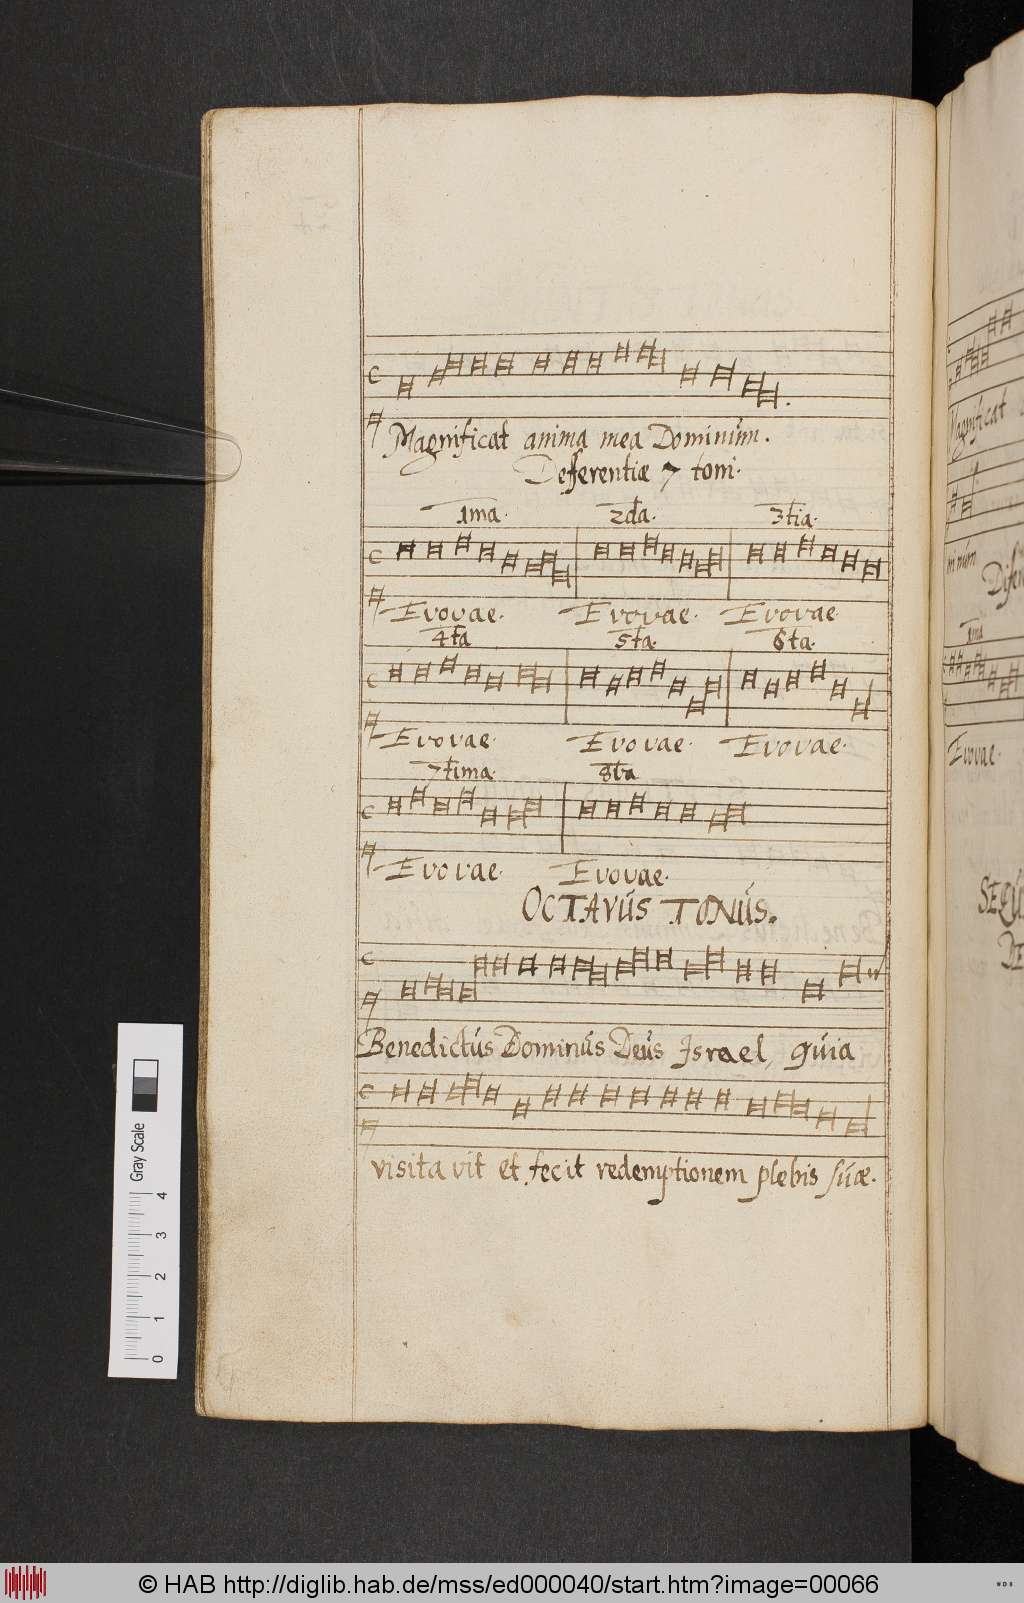 Magnificat anima mea Dominum.
Defferentiæ 7 toni.
1ma. 2da. 3tia.
Evovae. Evovae. Evovae.
4ta 5ta. 6ta.
Evovae. Evovae. Evovae.
7tima. 8ta
Evovae. Evovae.
OCTAVUS TONUS.
Benedictus Dominus Deus Israel, quia
visitavit et fecit redemptionem plebis suæ.
Magnificat
minum
1ma
Evovae.
Gray Scale
0 1 2 3 4
© HAB http://diglib.hab.de/mss/ed000040/start.htm?image=00066